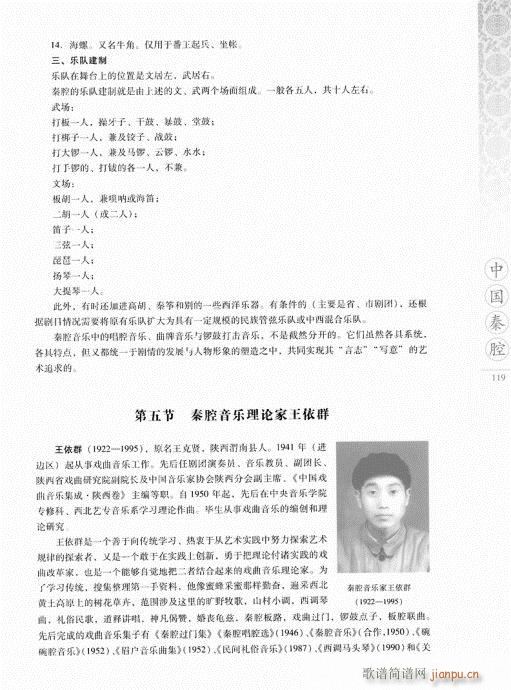 14. 海螺。又名牛角。仅用于番王起兵、坐帐。
三、乐队建制
乐队在舞台上的位置是文居左，武居右。
秦腔的乐队建制就是由上述的文、武两个场面组成。一般各五人，共十人左右。
武场：
打板一人，操牙子、干鼓、暴鼓、堂鼓；
打梆子一人，兼及铰子、战鼓；
打大锣一人，兼及马锣、云锣、水水；
打手锣的、打铙的各一人，不兼。
文场：
板胡一人，兼唢呐或海笛；
二胡一人（或二人）；
笛子一人；
三弦一人；
琵琶一人；
扬琴一人；
大提琴一人。
此外，有时还加进高胡、秦筝和别的一些西洋乐器。有条件的（主要是省、市剧团），还根
据剧目情况需要将原有乐队扩大为具有一定规模的民族管弦乐队或中西混合乐队。
秦腔音乐中的唱腔音乐、曲牌音乐与锣鼓打击音乐，不是截然分开的。它们虽然各具系统，
各具特点，但又都统一于剧情的发展与人物形象的塑造之中，共同实现其“言志”“写意”的艺
术追求的。
中国秦腔
119
第五节 秦腔音乐理论家王依群
王依群（1922—1995），原名王克贤，陕西渭南县人。1941 年（进
边区）起从事戏曲音乐工作。先后任剧团演奏员、音乐教员、副团长、
陕西省戏曲研究院副院长及中国音乐家协会陕西分会副主席，《中国戏
曲音乐集成·陕西卷》主编等职。自 1950 年起，先后在中央音乐学院
专修科、西北艺专音乐系学习理论作曲。毕生从事戏曲音乐的编创和理
论研究。
王依群是一个善于向传统学习、热衷于从艺术实践中努力探索艺术
规律的探索者，又是一个敢于在实践上创新，勇于把理论付诸实践的戏
曲改革家，也是一个能够自觉地把二者结合起来的戏曲音乐理论家。为
了学习传统，搜集整理第一手资料，他像蜜蜂采蜜那样勤奋，遍采西北
黄土高原上的稀花草卉，范围涉及这里的旷野牧歌，山村小调，西调琴
曲，礼俗民歌，道释讲唱，神凡偈赞，婚丧龟兹，秦腔板路，戏曲过门，锣鼓点子，板腔联曲。
先后完成的戏曲音乐集子有《秦腔过门集》《秦腔唱腔选》(1946)、《秦腔音乐》(合作,1950)、《碗
碗腔音乐》(1952)、《眉户音乐曲集》(1952)、《民间礼俗音乐》(1987)、《西调马头琴》(1990)和《关
秦腔音乐家王依群
(1922—1995)
歌谱简谱网
jianpu.cn